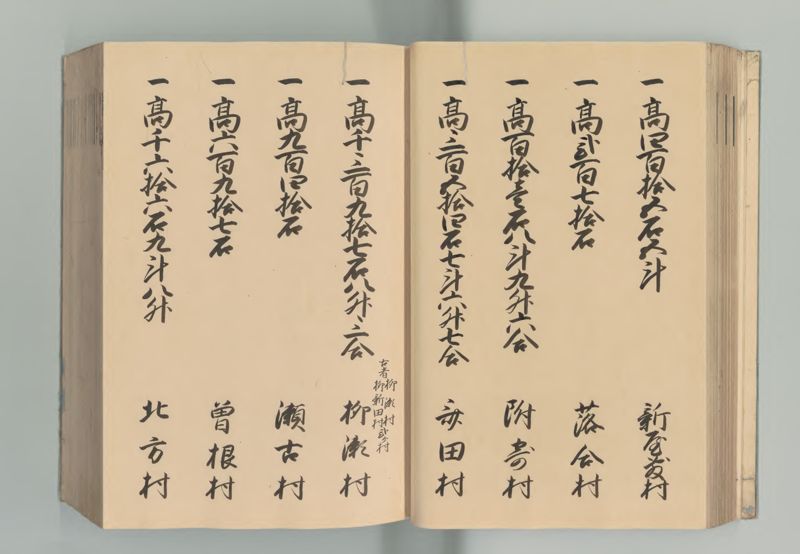 一髙四百拾五石五斗 新屋敷村
一髙弐百七拾石 落合村
一髙百拾壱石八斗九升六合 附寄村
一髙三百五拾四石七斗六升七合 田村
一髙千三百九拾七石八升三合 古者柳瀬村
柳新田村弐ケ村
柳瀬村
一髙九百四拾石 瀬古村
一髙六百九拾七石 曽根村
一髙千六拾六石九斗八升 北方村